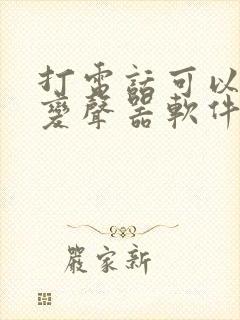 打電話可以
變聲器軟件
嚴家新